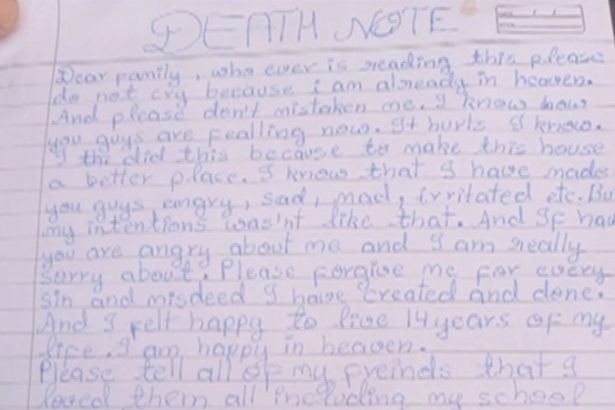 DEATH NOTE
Dear family, who ever is reading this please
do not cry because i am already in heaven.
And please don't mistaken me. I know how
you guys are fealling now. It hurts I know.
I did this because to make this house
a better place. I know that I have made
you guys angry, sad, mad, irritated etc. Bu
my intentions was'nt like that. And If had
you are angry about me and I am really
sorry about. Please forgive me for every
sin and misdeed I have created and done.
And I felt happy to live 14 years of my
life. I am happy in heaven.
Please tell all of my freinds that I
loved them all including my school